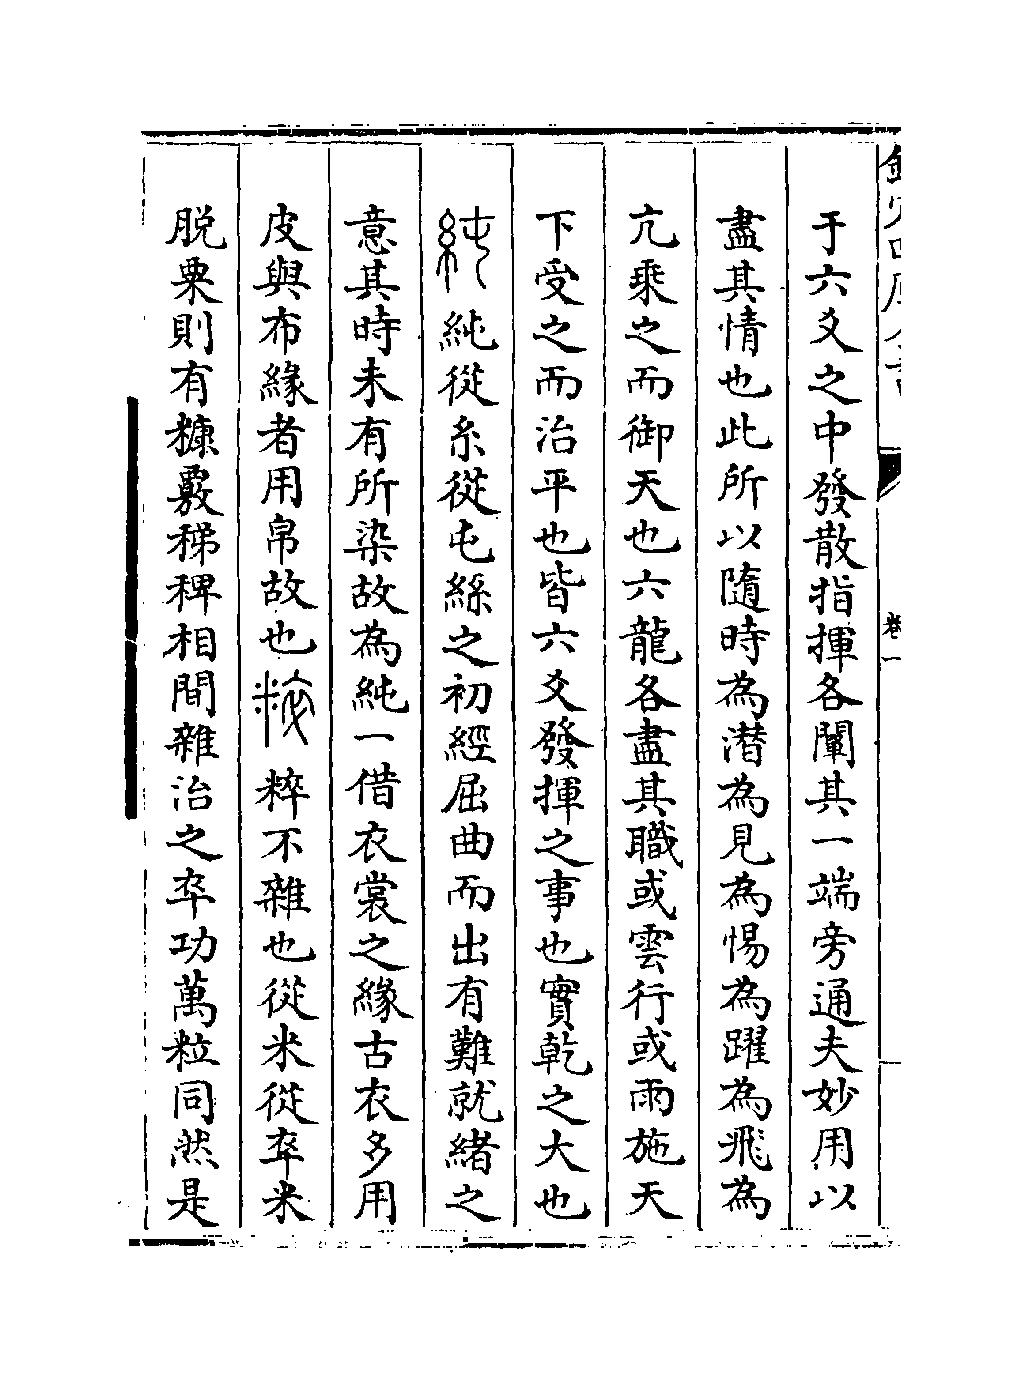 欽定四庫全書
卷一
于六爻之中發散指揮各闡其一端旁通夫妙用以
盡其情也此所以隨時為潛為見為惕為躍為飛為
亢乘之而御天也六龍各盡其職或雲行或雨施天
下受之而治平也皆六爻發揮之事也實乾之大也
純純從糸從屯絲之初經屈曲而出有難就緒之
意其時未有所染故為純一借衣裳之緣古衣多用
皮與布緣者用帛故也粹粹不雜也從米從卒米
脫粟則有糠覈稊稗相間雜治之卒功萬粒同然是